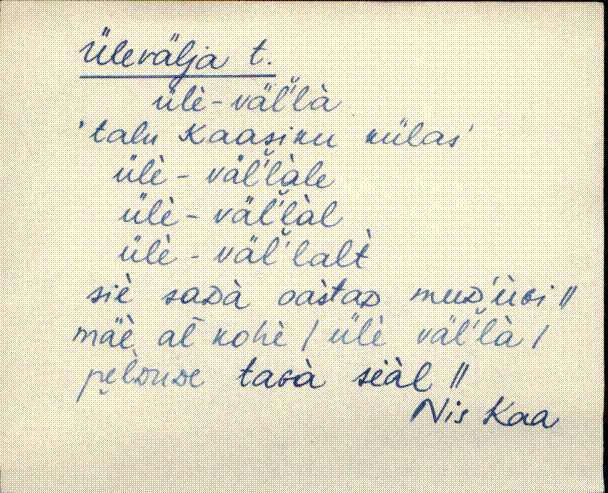 Ülevälja t.
üle̽̀-väl̆'là
'talu Kaasiku külas'
ülè-väl̆'làle
ülè-väl̆'làl
ülè-väl̆'lalt̀
siè saᴅà oàstaᴅ muᴅ'ùɢi //
mäè al̄ kohè / ülè väl̆'là /
pèlᴅuᴅe taɢà sèàl //
Nis Kaa